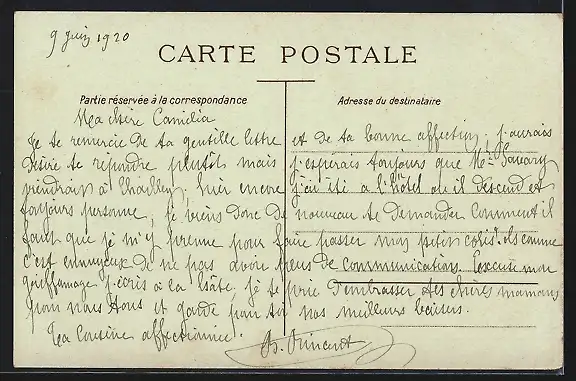 9 juin 1920
CARTE POSTALE
Partie réservée à la correspondance
Adresse du destinataire
Ma chère Camélia
Je te remercie de ta gentille lettre et de ta bonne affection, j'aurais
désiré te répondre plutôt mais j'espérais toujours que Mr
viendrait à Chailley, hier encore j'ai été à l'hôtel où il descend et
toujours personne, je viens donc de nouveau te demander comment il
faut que je m'y prenne pour faire passer mon petit colis. ils comme
c'est ennuyeux de ne pas avoir plus de communication. Excuse mon
griffonnage j'écris à la hâte, je te prie d'embrasser tes chères mamans
pour nous tous et garde pour toi nos meilleurs baisers.
Ta cousine affectionnée. G. Vincent